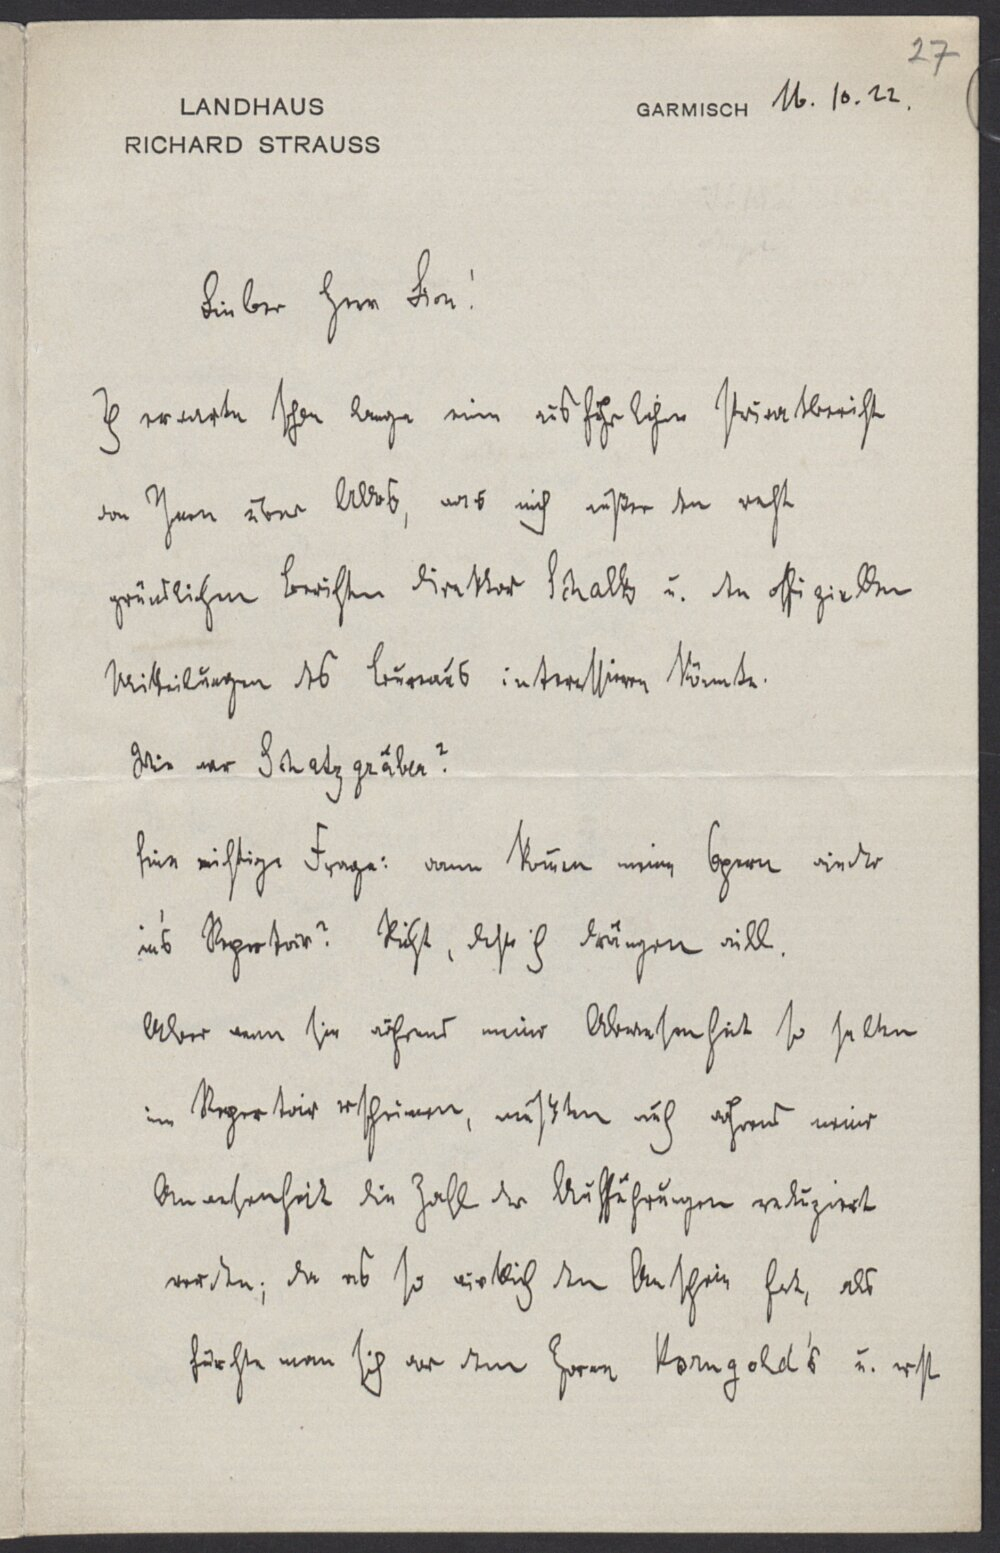 27
LANDHAUS
RICHARD STRAUSS
GARMISCH 16. 10. 22.
Lieber Herr Lion!
Ich erwarte schon lange einen ausführlichen Privatbericht
von Ihnen über Alles, was mich außer den recht
gründlichen Berichten Direktor Schalks u. den offiziellen
Mitteilungen des Bureaus interessieren könnte.
Wie war Schatzgräber?
Eine wichtige Frage: wann kom̄en meine Opern wieder
in's Repertoir? Nicht, daß ich drängen will.
Aber wenn sie während meiner Abwesenheit so selten
im Repertoir erscheinen, müßten auch während meiner
Anwesenheit die Zahl der Aufführungen reduziert
werden; da es so wirklich den Anschein hat, als
fürchte man sich vor dem Zorne Korngold's u. erst